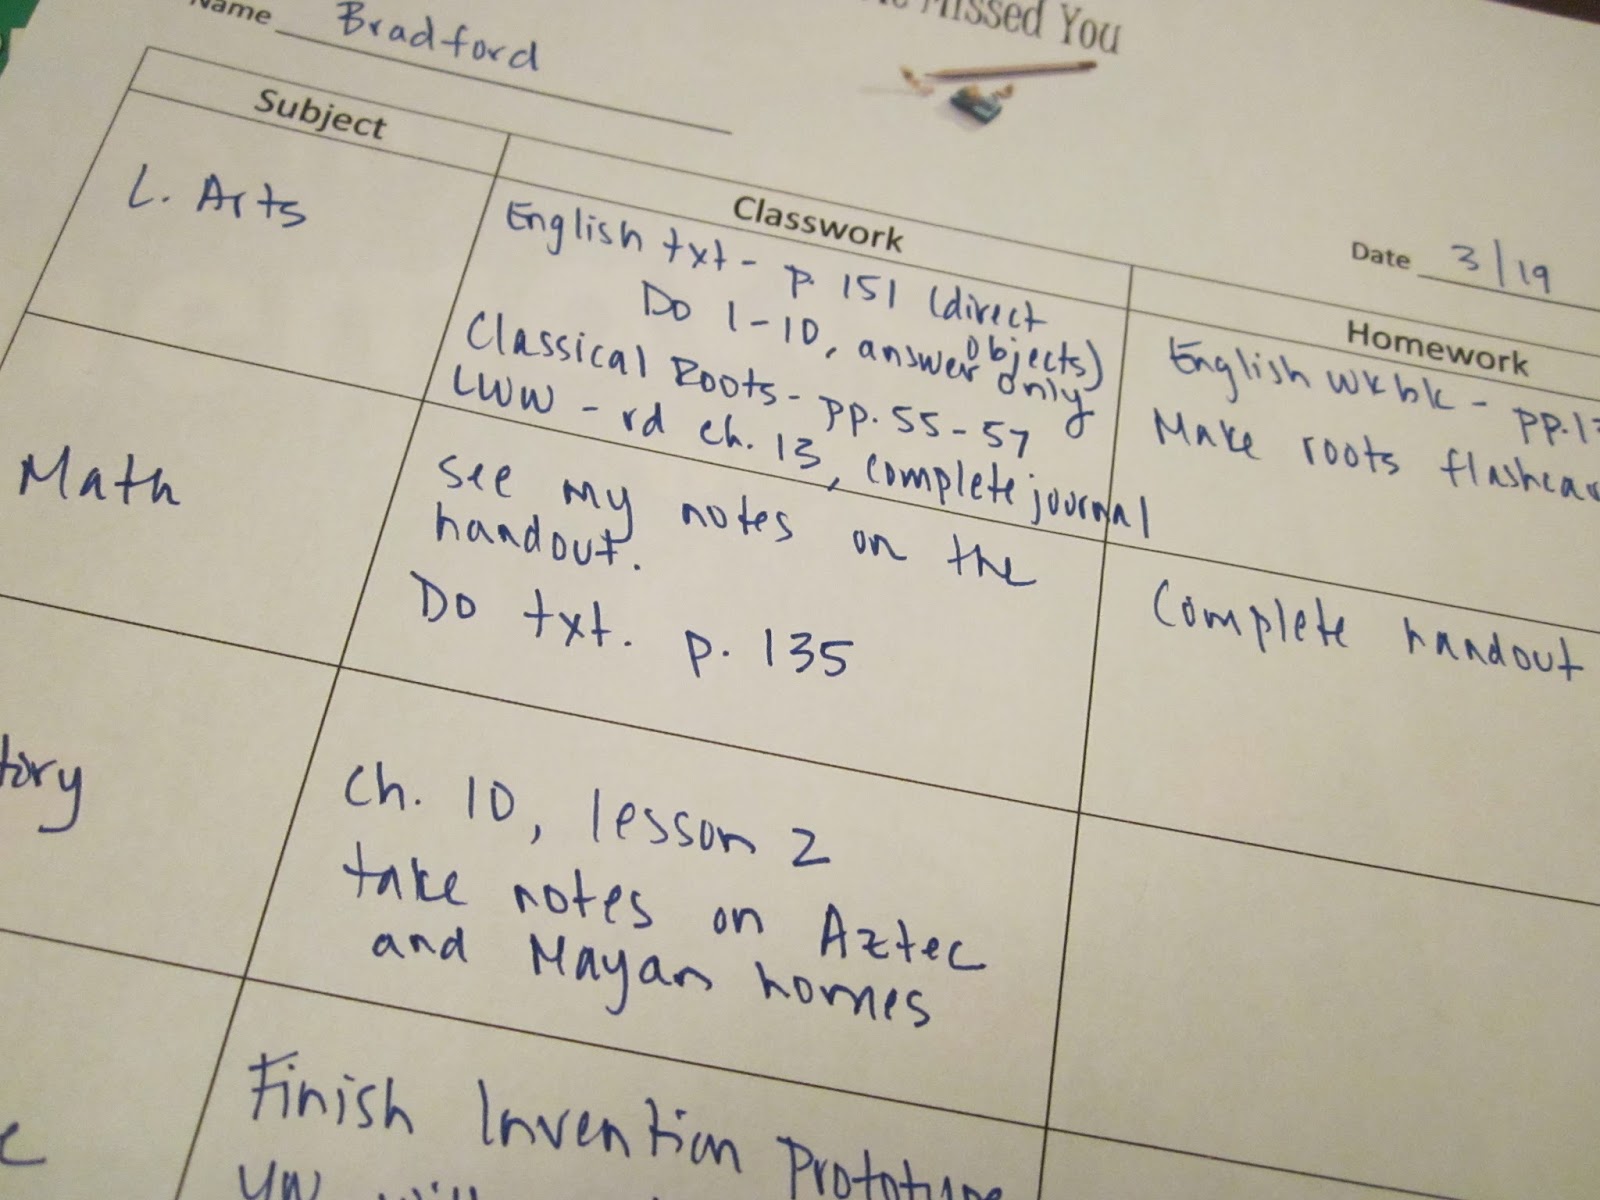 Missed You
Name Bradford
Date 3/19
Subject
Classwork
Homework
L. Arts
English txt - p. 151 (direct
objects)
Do 1-10, answer only
Classical Roots - pp. 55-57
LWW - rd ch. 13, complete journal
English wkbk - pp.
Make roots
Math
see my notes on the
handout.
Do txt. p. 135
Complete handout
tory
Ch. 10, lesson 2
take notes on Aztec
and Mayan homes
Finish Invention Prototype